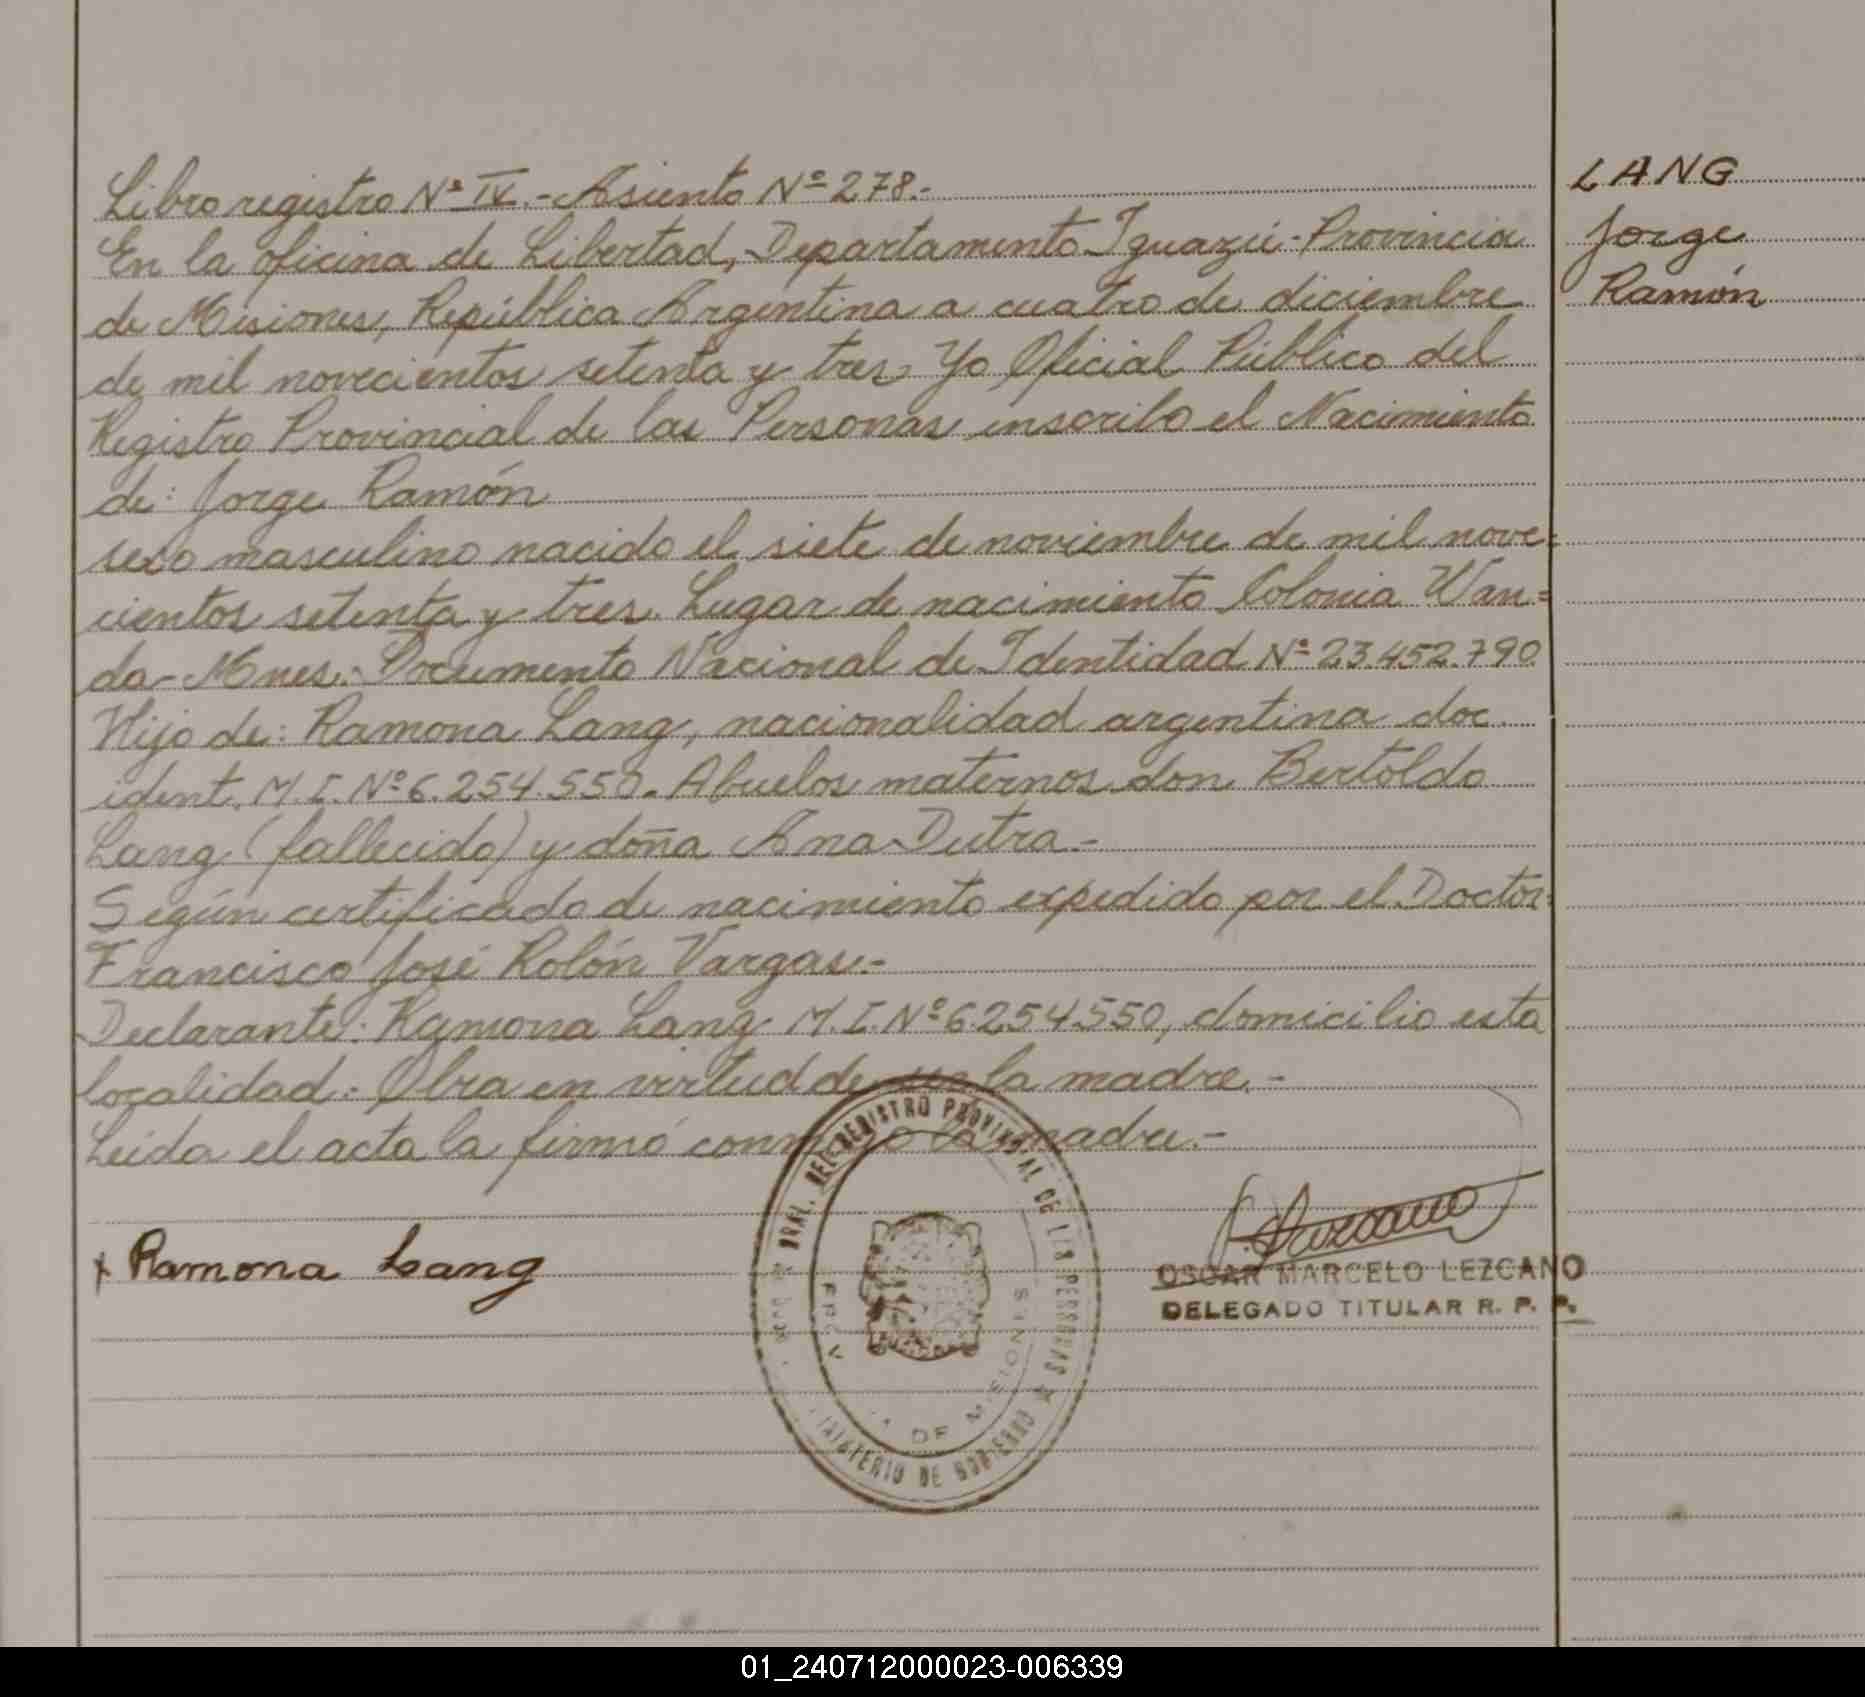 Libro registro Nº IV.- Asiento Nº 278.-
En la oficina de Libertad, Departamento Iguazú - Provincia
de Misiones, República Argentina a cuatro de diciembre
de mil novecientos setenta y tres. Yo Oficial Público del
Registro Provincial de las Personas inscribo el Nacimiento
de: Jorge Ramón
sexo masculino nacido el siete de noviembre de mil nove=
cientos setenta y tres. Lugar de nacimiento Colonia Wan=
da - Mnes.- Documento Nacional de Identidad Nº 23.452.790
Hijo de: Ramona Lang, nacionalidad argentina doc.
ident. M.I. Nº 6.254.550.- Abuelos maternos don Bertoldo
Lang (fallecido) y doña Ana Dutra.-
Según certificado de nacimiento expedido por el Doctor=
Francisco José Rolón Vargas.-
Declarante: Ramona Lang M.I. Nº 6.254.550, domicilio esta
localidad: Obra en virtud de ser la madre.-
Leída el acta la firmó conmigo la madre.-
LANG
Jorge
Ramón
x Ramona Lang
GRAL. DEL REGISTRO PROVINCIAL DE LAS PERSONAS
MINISTERIO DE GOBIERNO
DE MISIONES
OSCAR MARCELO LEZCANO
DELEGADO TITULAR R. P. P.
01_240712000023-006339